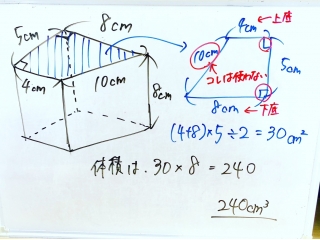 5cm
8cm
4cm
10cm
8cm
4cm ←上底
10cm
コレは使わない
5cm
8cm ←下底
(4+8)×5÷2=30cm²
体積は、30×8=240
240cm³